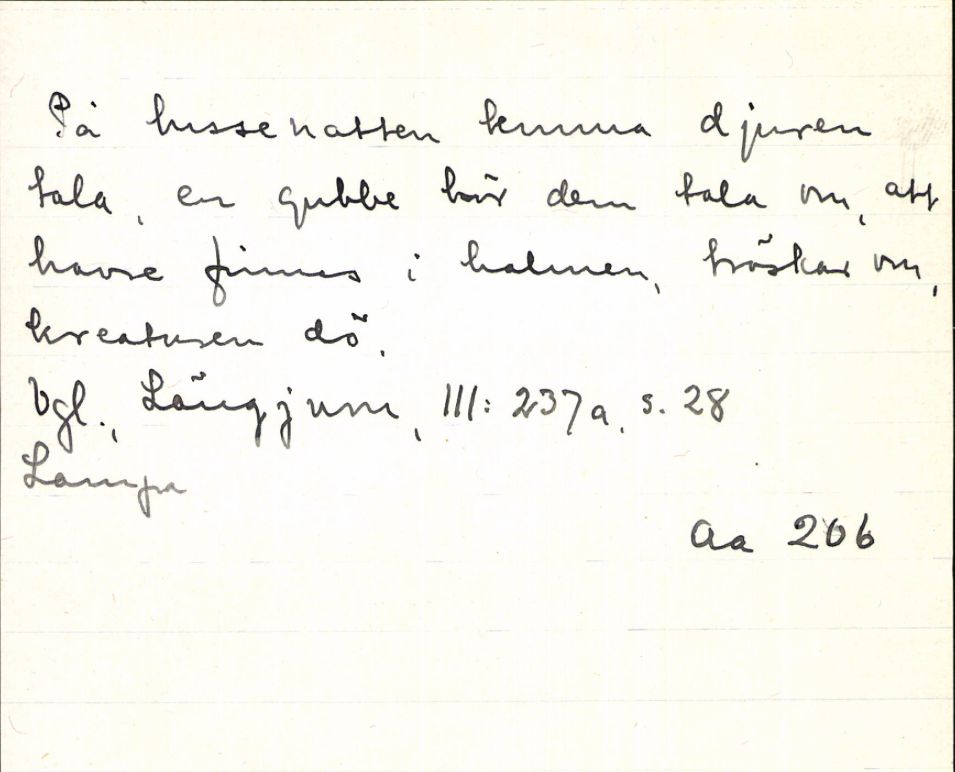 På lussenatten kunna djuren
tala, en gubbe hör dem tala om, att
havre finnes i halmen, tröskar om,
kreaturen dö.
Vgl., Långjum, III: 237a, s. 28
Lampa
Aa 206